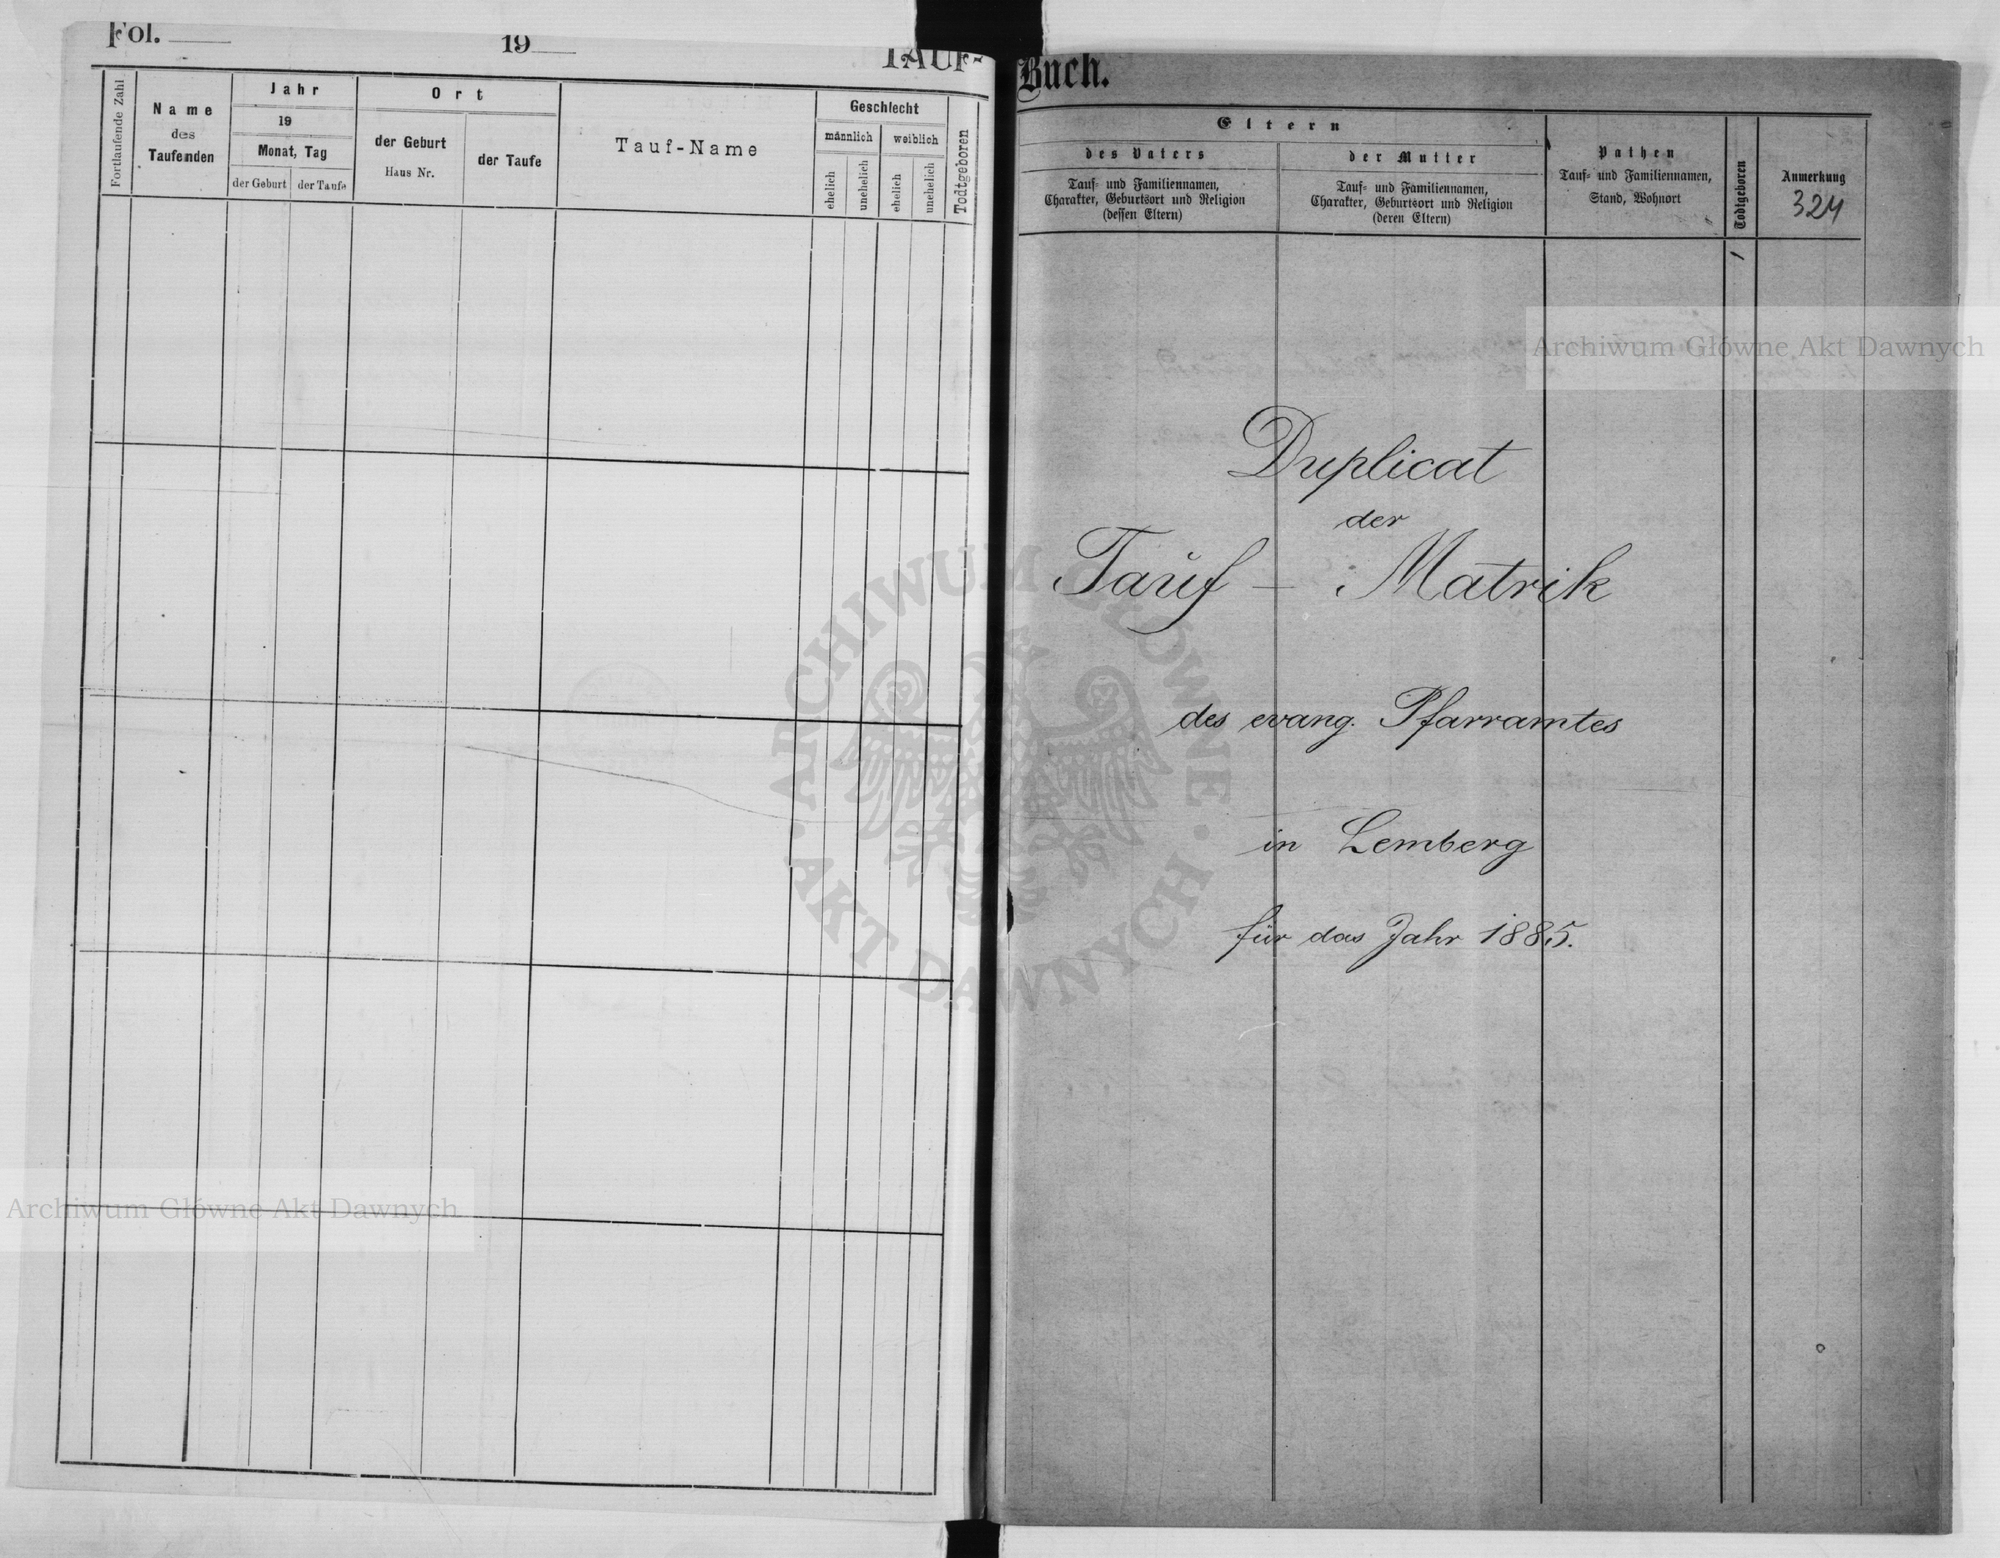 Fol.
19
TAUF-
Fortlaufende Zahl
Name
des
Taufenden
Jahr
19
Monat, Tag
der Geburt
der Taufe
Ort
der Geburt
Haus Nr.
der Taufe
Tauf-Name
Geschlecht
männlich
weiblich
ehelich
unehelich
ehelich
unehelich
Todtgeboren
Buch.
Eltern
des Vaters
Tauf- und Familiennamen,
Charakter, Geburtsort und Religion
(dessen Eltern)
der Mutter
Tauf- und Familiennamen,
Charakter, Geburtsort und Religion
(deren Eltern)
Pathen
Tauf- und Familiennamen,
Stand, Wohnort
Todtgeboren
Anmerkung
324
Archiwum Główne Akt Dawnych
Duplicat
der
Tauf - Matrik
des evang. Pfarramtes
in Lemberg
für das Jahr 1885.
ARCHIWUM GŁÓWNE · AKT DAWNYCH ·
Archiwum Główne Akt Dawnych